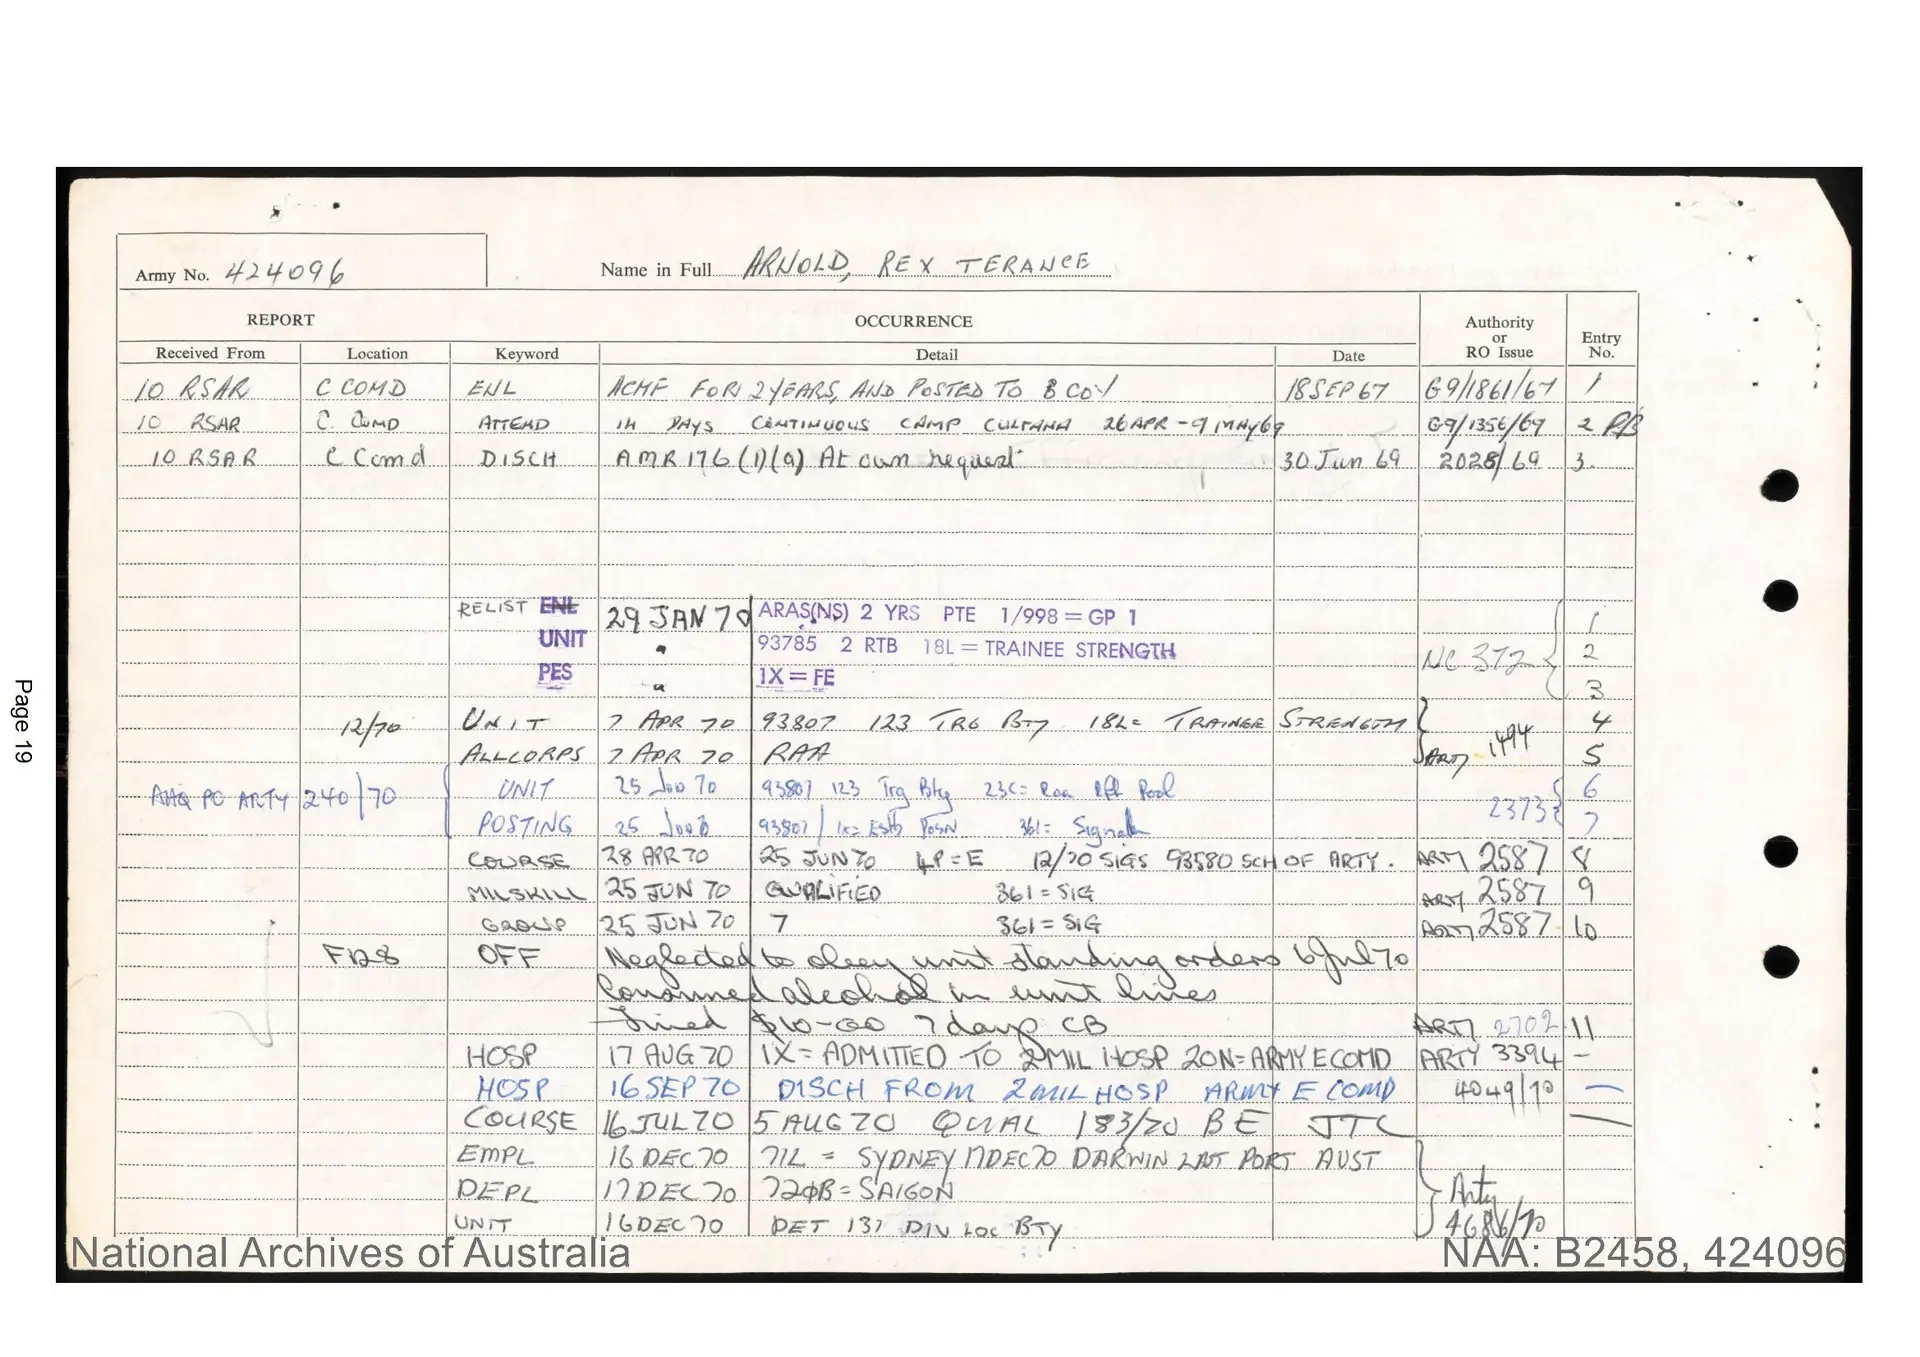 Army No. 424096 Name in Full ARNOLD, REX TERANCE
REPORT OCCURRENCE Authority or RO Issue Entry No.
Received From Location Keyword Detail Date
10 RSAR C COMD ENL ACMF FOR 2 YEARS, AND POSTED TO B COY 18 SEP 67 G9/1861/67 1
10 RSAR C. COMD ATTEND 14 DAYS CONTINUOUS CAMP CULTANA 26 APR - 9 MAY 69 G9/1356/69 2
10 RSAR C Comd DISCH AMR 176 (1)(a) At own request 30 Jun 69 2028/69 3.
RELIST ENL 29 JAN 70 ARAS(NS) 2 YRS PTE 1/998 = GP 1 1
UNIT " 93785 2 RTB 18L = TRAINEE STRENGTH NC 372 2
PES " 1X = FE 3
12/70 UNIT 7 APR 70 93807 123 TRG BTY 18L = TRAINEE STRENGTH 4
ALLCORPS 7 APR 70 RAA ARTY 1494 5
AHQ PO ARTY 240/70 UNIT 25 Jun 70 93807 123 Trg Bty 23C = Raa Rft Pool 6
POSTING 25 Jun 70 93807 / 1X = Estb Posn 361 = Signaller 2373 7
COURSE 28 APR 70 25 JUN 70 4P = E 12/70 SIGS 93580 SCH OF ARTY. ARTY 2587 8
MILSKILL 25 JUN 70 QUALIFIED 361 = SIG ARTY 2587 9
GROUP 25 JUN 70 7 361 = SIG ARTY 2587 10
OFF Neglected to obey unit standing orders 6 Jul 70
Consumed alcohol in unit lines
Fined $10-00 7 days CB ARTY 2702 11
HOSP 17 AUG 70 1X = ADMITTED TO 2 MIL HOSP 20N = ARMY E COMD ARTY 3394 –
HOSP 16 SEP 70 DISCH FROM 2 MIL HOSP ARMY E COMD 4049/70 —
COURSE 16 JUL 70 5 AUG 70 QUAL 183/70 BE JTC —
EMPL 16 DEC 70 71L = SYDNEY 17 DEC 70 DARWIN LAST PORT AUST
DEPL 17 DEC 70 720B = SAIGON Arty
UNIT 16 DEC 70 DET 131 DIV LOC BTY 4686/70
National Archives of Australia NAA: B2458, 424096
Page 19